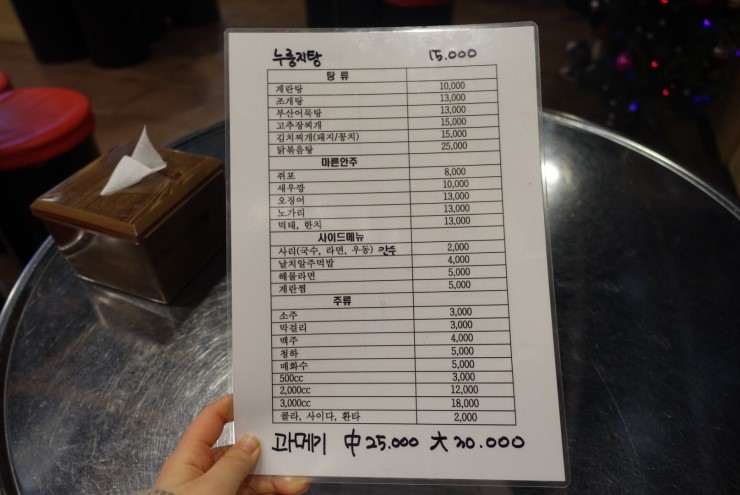 누룽지탕 15.000
탕 류
계란탕 10,000
조개탕 13,000
부산어묵탕 13,000
고추장찌개 15,000
김치찌개(돼지/꽁치) 15,000
닭볶음탕 25,000
마른안주
쥐포 8,000
새우깡 10,000
오징어 13,000
노가리 13,000
먹태, 한치 13,000
사이드메뉴
사리(국수, 라면, 우동) 2,000
날치알주먹밥 4,000
해물라면 5,000
계란찜 5,000
주류
소주 3,000
막걸리 3,000
맥주 4,000
청하 5,000
매화수 5,000
500cc 3,000
2,000cc 12,000
3,000cc 18,000
콜라, 사이다, 환타 2,000
과메기 中 25.000 大 30.000